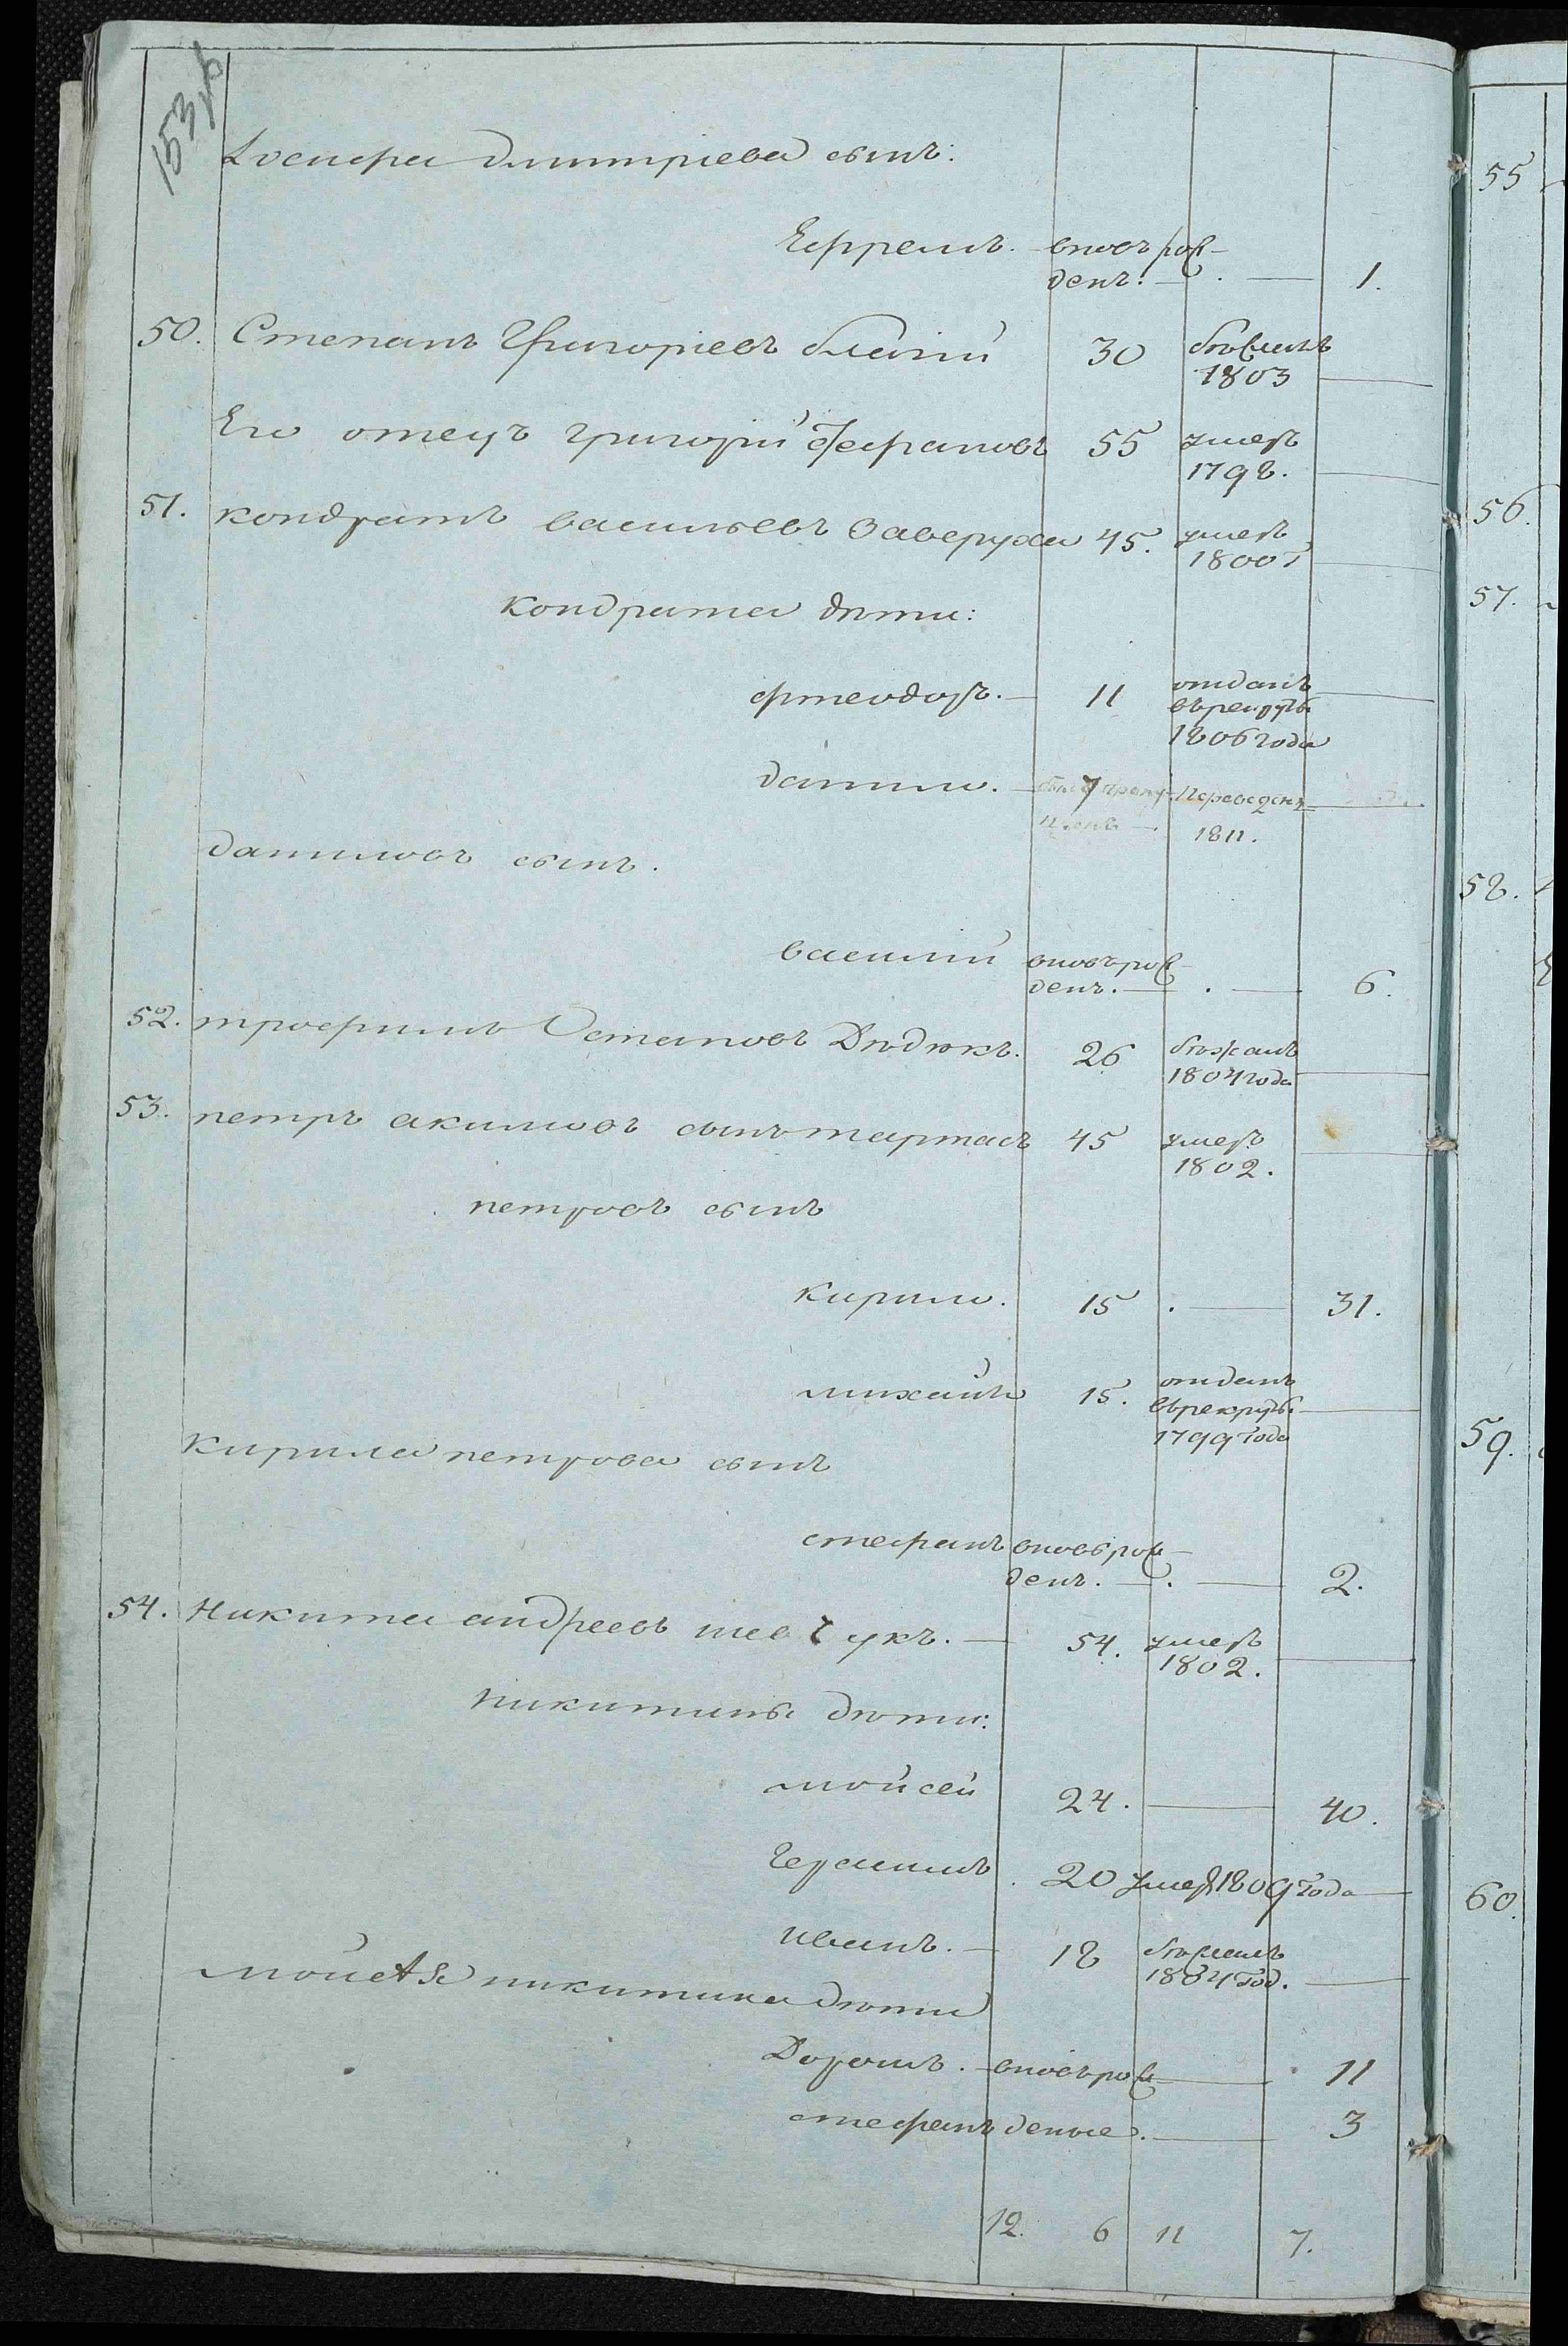 153 об
Іосифа дмитріева сынъ:
Ефремъ. вновърож-
денъ. 1.
50. Степанъ Григоріевъ 30 бѣжалъ
1803
Его отецъ григорій 55 умеръ
1798.
51. кондратъ васильевъ Заверуха 45. умеръ
1800 г
кондрата дѣти:
фтеодоръ. 11 отданъ
въ рекруты
1806 года
данило. 7 Переведенъ
1811.
даниловъ сынъ.
василій вновърож-
денъ. 6.
52. трофимъ Остаповъ Дѣдюкъ. 26 бѣжалъ
1804 года
53. петръ акимовъ сынъ тартасъ 45 умеръ
1802.
петровъ сынъ
кирило. 15 31.
михайло 15. отданъ
въ рекруты
1799 года
кирила петрова сынъ
стефанъ вновьрож-
денъ. 2.
54. Никита андреевъ шевчукъ. 54. умеръ
1802.
никитины дѣти:
мойсей 24. 40.
Герасимъ 20 умеръ 1809 года
иванъ. 18 бѣжалъ
1804 год.
мойсея никитина дѣти
Дорошъ. вновърож 11
стефанъ деные. 3
12. 6 11 7.
55
56.
57.
58.
59.
60.